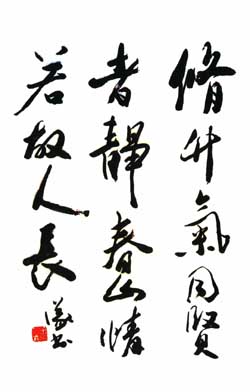 脩竹氣同賢
者靜春山情
若故人長
书